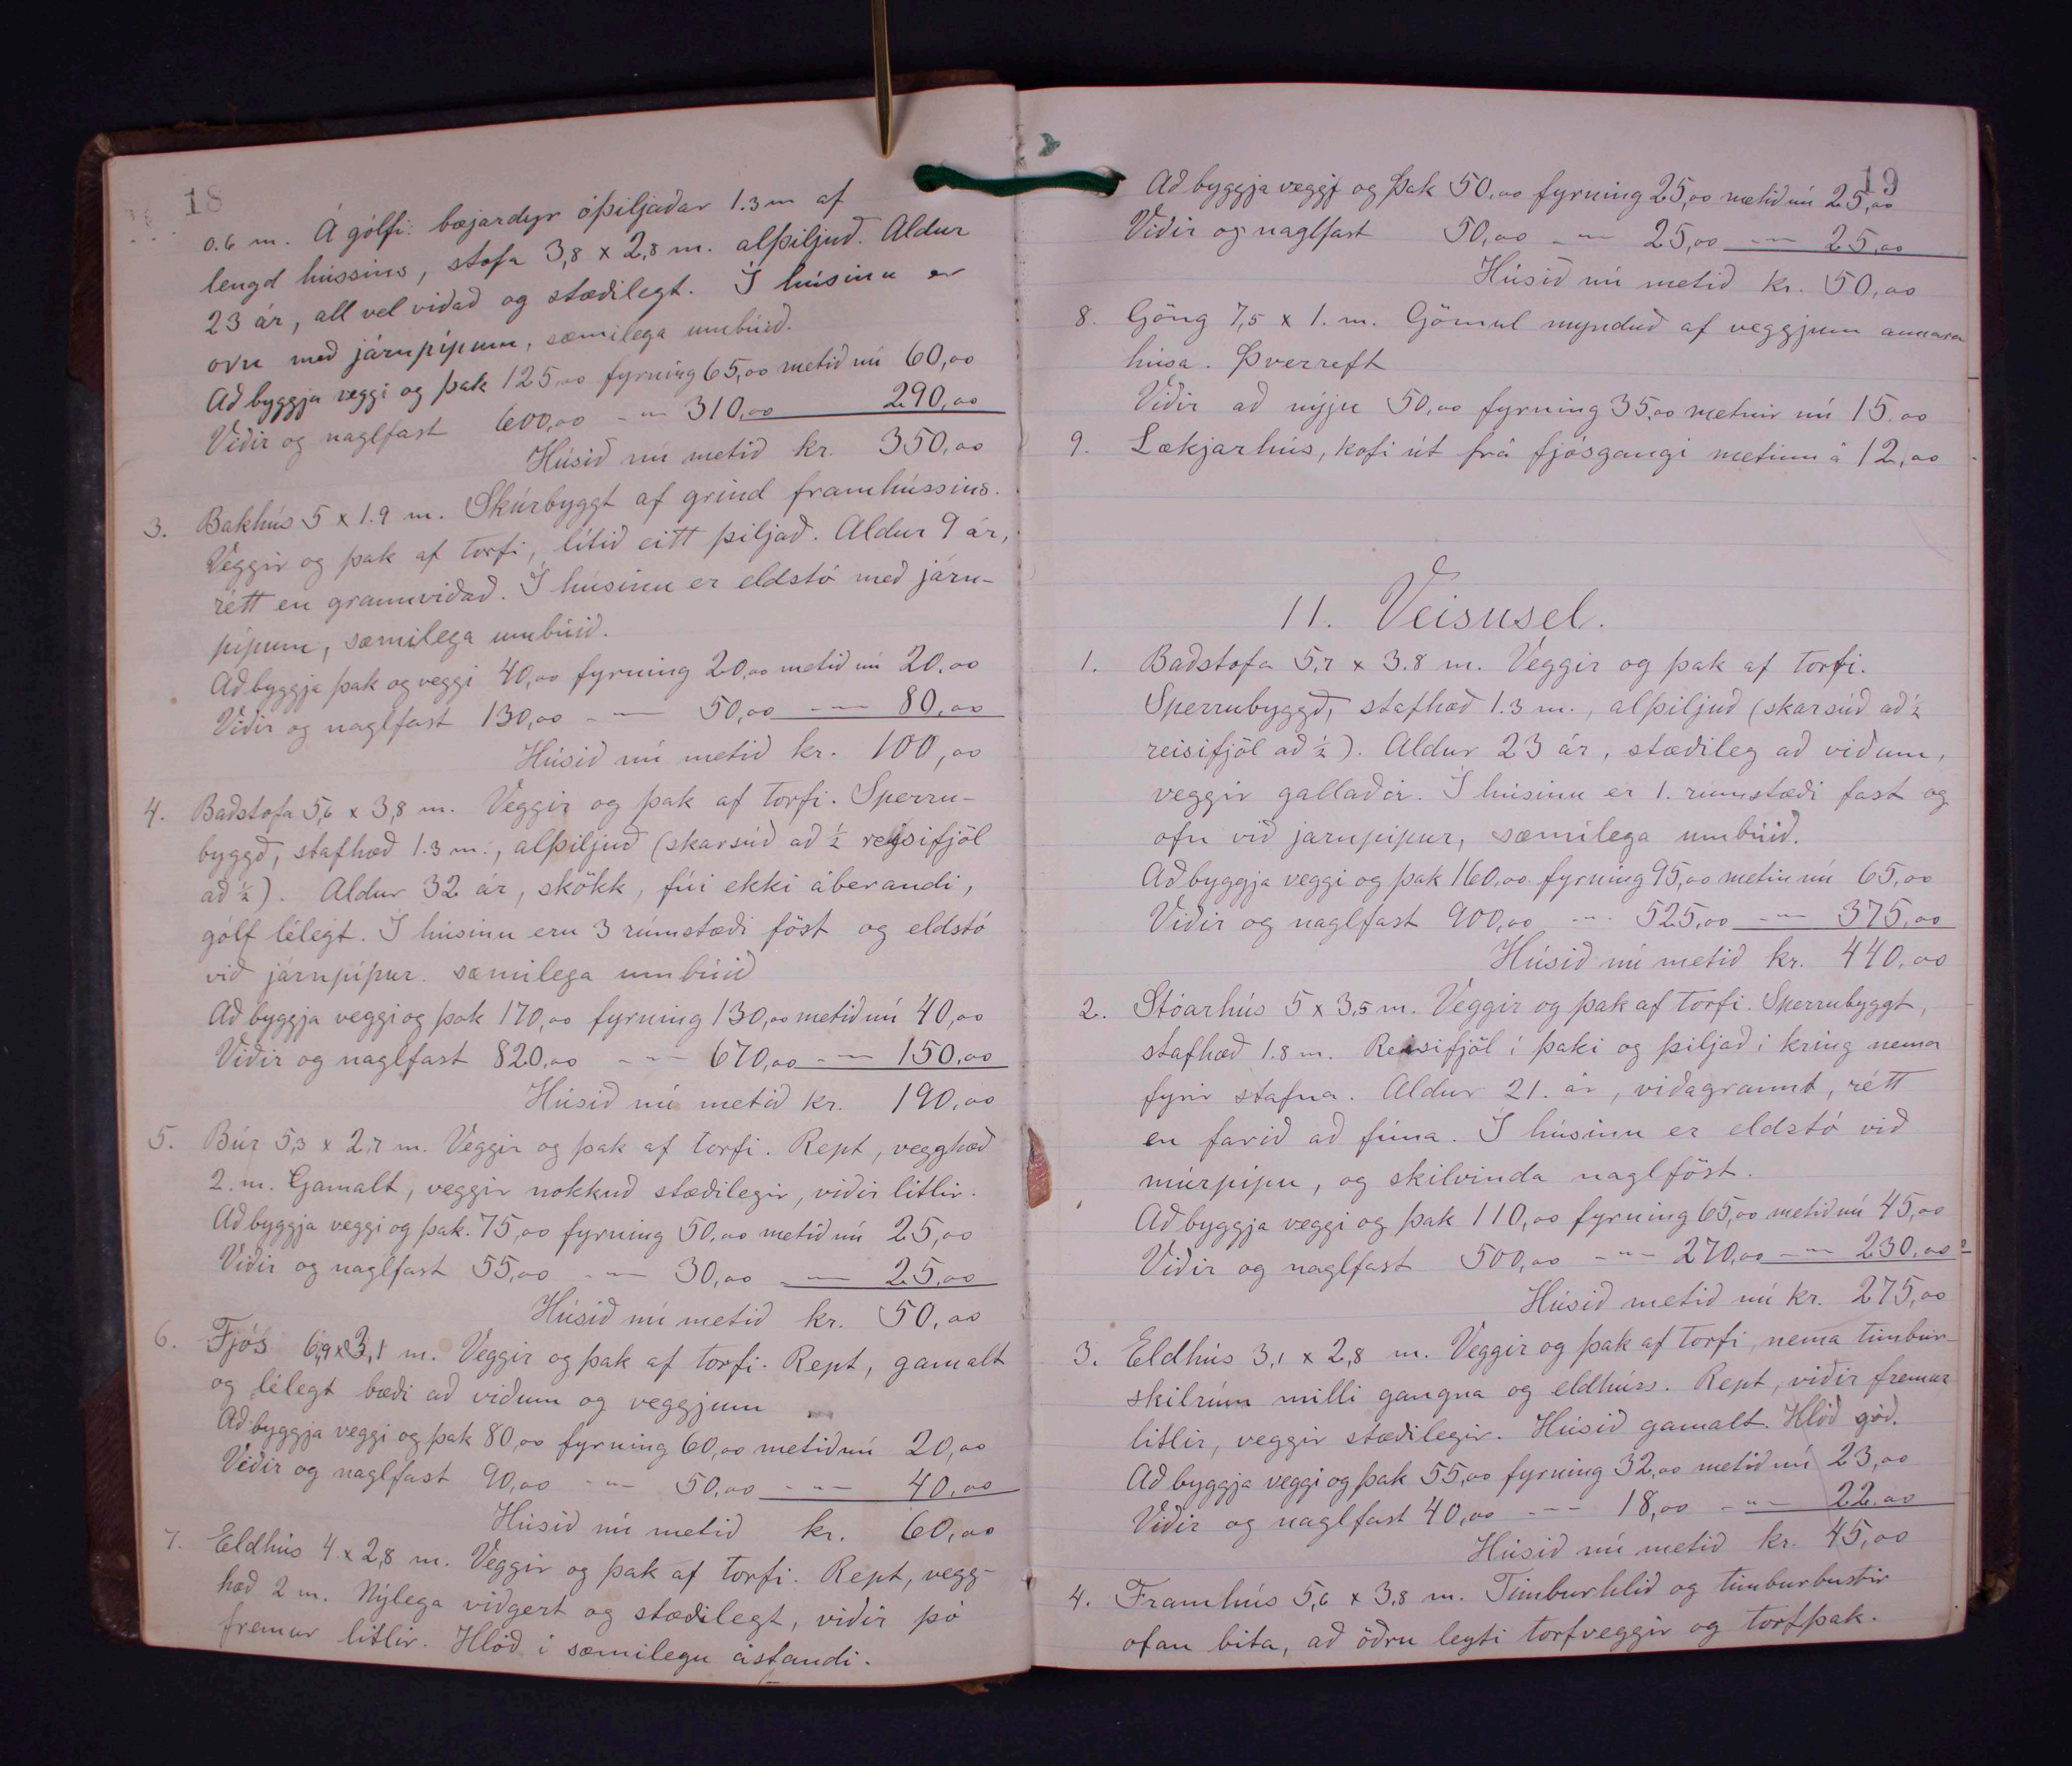 18
0.6 m. Á gólfi: bæjardyr óþiljaðar 1.3 m af
lengd hússins, stofa 3,8 x 2,8 m. alþiljuð. Aldur
23 ár, all vel viðað og stæðilegt. Í húsinu er
ovn með járnpípum, sæmilega umbúið.
Að byggja veggi og þak 125,00 fyrning 65,00 metið nú 60,00
Viðir og naglfast 600,00 -"- 310,00 290,00
Húsið nú metið kr. 350,00
3. Bakhús 5 x 1.9 m. Skúrbyggt af grind framhússins.
Veggir og þak af torfi, lítið eitt þiljað. Aldur 9 ár,
rétt en grannviðað. Í húsinu er eldstó með járn-
pípum, sæmilega umbúið.
Að byggja þak og veggi 40,00 fyrning 20,00 metið nú 20,00
Viðir og naglfast 130,00 -"- 50,00 -"- 80,00
Húsið nú metið kr. 100,00
4. Baðstofa 5,6 x 3,8 m. Veggir og þak af torfi. Sperru-
byggð, stafhæð 1.3 m., alþiljuð (skarsúð að ½ reisifjöl
að ½). Aldur 32 ár, skökk, fúi ekki áberandi,
gólf lélegt. Í húsinu eru 3 rúmstæði föst og eldstó
við járnpípur. sæmilega umbúið
Að byggja veggi og þak 170,00 fyrning 130,00 metið nú 40,00
Viðir og naglfast 820,00 -"- 670,00 -"- 150,00
Húsið nú metið kr. 190,00
5. Búr 5,3 x 2,7 m. Veggir og þak af torfi. Rept, vegghæð
2. m. Gamalt, veggir nokkuð stæðilegir, viðir litlir.
Að byggja veggi og þak. 75,00 fyrning 50,00 metið nú 25,00
Viðir og naglfast 55,00 -"- 30,00 -"- 25,00
Húsið nú metið kr. 50,00
6. Fjós 6,9 x 3,1 m. Veggir og þak af torfi. Rept, gamalt
og lélegt bæði að viðum og veggjum
Að byggja veggi og þak 80,00 fyrning 60,00 metið nú 20,00
Viðir og naglfast 90,00 -"- 50,00 -"- 40,00
Húsið nú metið kr. 60,00
7. Eldhús 4 x 2,8 m. Veggir og þak af torfi. Rept, vegg-
hæð 2 m. Nýlega viðgert og stæðilegt, viðir þó
fremur litlir. Hlóð í sæmilegu ástandi.
19
Að byggja veggi og þak 50,00 fyrning 25,00 metið nú 25,00
Viðir og naglfast 50,00 -"- 25,00 -"- 25,00
Húsið nú metið kr. 50,00
8. Göng 7,5 x 1. m. Gömul mynduð af veggjum annara
húsa. Þverreft
Viðir að nýju 50,00 fyrning 35,00 metnir nú 15.00
9. Lækjarhús, kofi út frá fjósgangi metinn á 12,00
11. Veisusel.
1. Baðstofa 5,7 x 3.8 m. Veggir og þak af torfi.
Sperrubyggð, stafhæð 1.3 m., alþiljuð (skarsúð að ½
reisifjöl að ½). Aldur 23 ár, stæðileg að viðum,
veggir gallaðir. Í húsinu er 1. rúmstæði fast og
ofn við jarnpípur, sæmilega umbúið.
Að byggja veggi og þak 160,00 fyrning 95,00 metin nú 65,00
Viðir og naglfast 900,00 -"- 525,00 -"- 375,00
Húsið nú metið kr. 440,00
2. Stóarhús 5 x 3,5 m. Veggir og þak af torfi. Sperrubyggt,
stafhæð 1.8 m. Reisifjöl í þaki og þiljað í kring nema
fyrir stafna. Aldur 21. ár, viðagrannt, rétt
en farið að fúna. Í húsinu er eldstó við
múrpípu, og skilvinda naglföst.
Að byggja veggi og þak 110,00 fyrning 65,00 metið nú 45,00
Viðir og naglfast 500,00 -"- 270,00 -"- 230,00
Húsið metið nú kr. 275,00
3. Eldhús 3,1 x 2,8 m. Veggir og þak af torfi, nema timbur-
skilrúm milli gangna og eldhúss. Rept, viðir fremur
litlir, veggir stæðilegir. Húsið gamalt. Hlóð góð.
Að byggja veggi og þak 55,00 fyrning 32,00 metið nú 23,00
Viðir og naglfast 40,00 -"- 18,00 -"- 22.00
Húsið nú metið kr. 45,00
4. Framhús 5,6 x 3,8 m. Timburhlið og timburbustir
ofan bita, að öðru leyti torfveggir og torfþak.